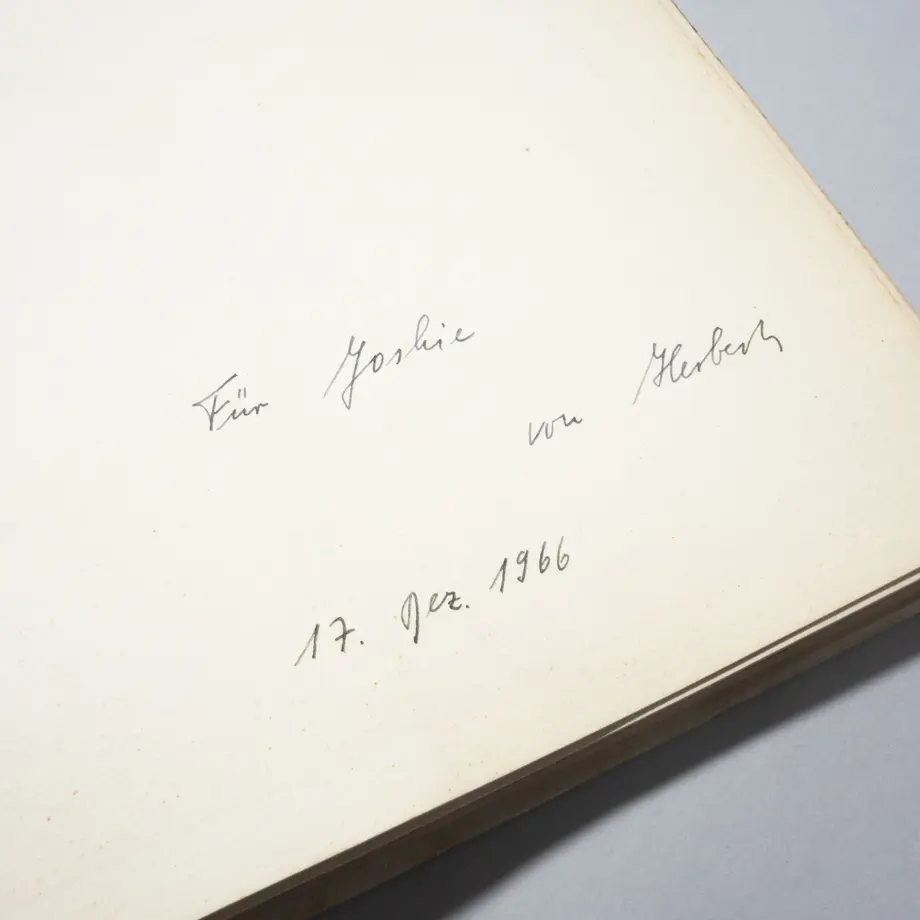 Für Joskie
von Herbert
17. Dez. 1966